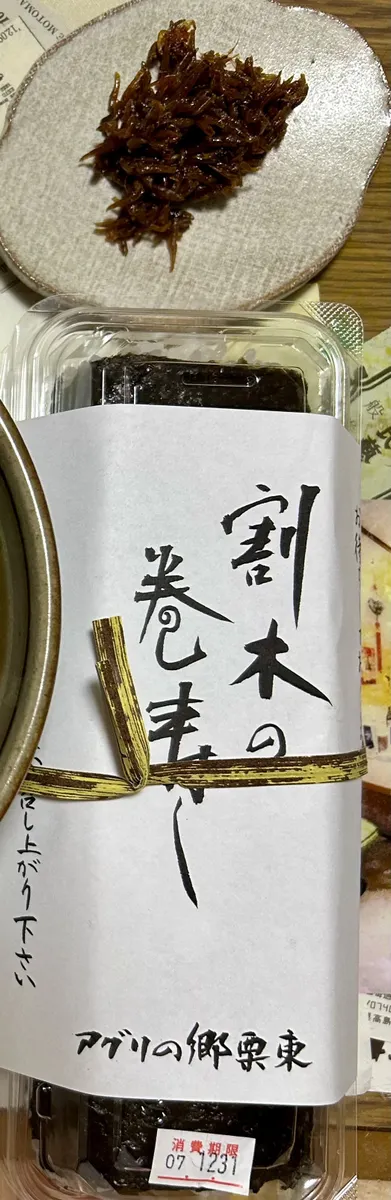 割木の
巻寿し
召し上がり下さい
アグリの郷栗東
消費期限
07 1231